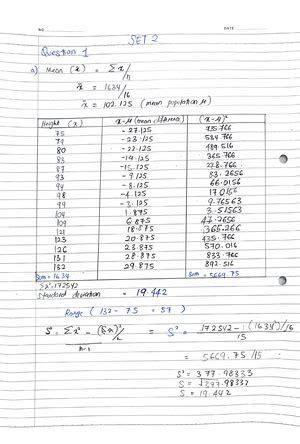 NO. DATE
SET 2
Question 1
a) Mean (x̄) = Σx/n
x̄ = 1634/16
x̄ = 102.125 (mean population μ)
Height (x) x-μ (mean difference) (x-μ)²
75 -27.125 735.766
79 -23.125 534.766
80 -22.125 489.516
83 -19.125 365.766
87 -15.125 228.766
93 -9.125 83.2656
94 -8.125 66.0156
98 -4.125 17.0156
99 -3.125 9.76563
104 1.875 3.51563
109 6.875 47.2656
121 18.875 365.266
123 20.875 435.766
126 23.875 570.016
131 28.875 833.766
132 29.875 892.516
Sum = 1634 Sum = 5669.75
Σx²=172542
Standard deviation = 19.442
Range (132 - 75 = 57)
S² = Σx² - (Σx)²/n / n-1 = S² = 172542 - (1634)²/16 / 15
= 5669.75 /15
S² = 377.98333
S = √377.98333
S = 19.442